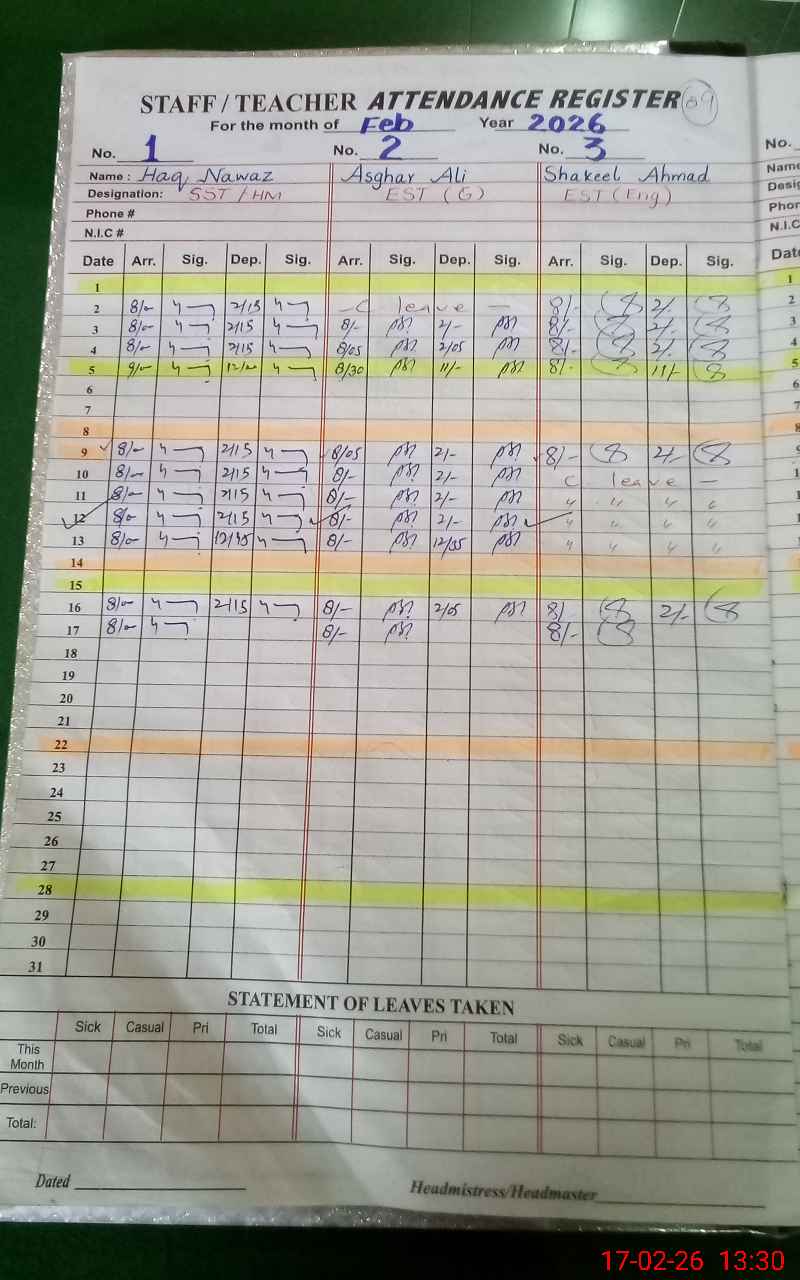 STAFF / TEACHER ATTENDANCE REGISTER 89
For the month of Feb Year 2026
No. 1 No. 2 No. 3 No.
Name : Haq Nawaz Asghar Ali Shakeel Ahmad Name
Designation: SST / HM EST (G) EST (Eng) Desig
Phone # Phor
N.I.C # N.I.C
Date Arr. Sig. Dep. Sig. Arr. Sig. Dep. Sig. Arr. Sig. Dep. Sig. Date
1 1
2 8/- 2/15 - C leave - 8/- 2/- 2
3 8/- 2/15 8/- 2/- 8/- 2/- 3
4 8/- 2/15 8/05 2/05 8/- 2/- 4
5 12/- 8/30 11/- 8/- 11/- 5
6 6
7 7
8
9 8/- 2/15 8/05 2/- 8/- 2/-
10 8/- 2/15 8/- 2/- C leave -
11 8/- 2/15 8/- 2/- " " " "
12 8/- 2/15 8/- 2/- " " " "
13 8/- 8/- 12/35 " " " "
14
15
16 8/- 2/15 8/- 2/05 8/- 2/-
17 8/- 8/- 8/-
18
19
20
21
22
23
24
25
26
27
28
29
30
31
STATEMENT OF LEAVES TAKEN
Sick Casual Pri Total Sick Casual Pri Total Sick Casual Pri Total
This Month
Previous
Total:
Dated Headmistress/Headmaster
17-02-26 13:30